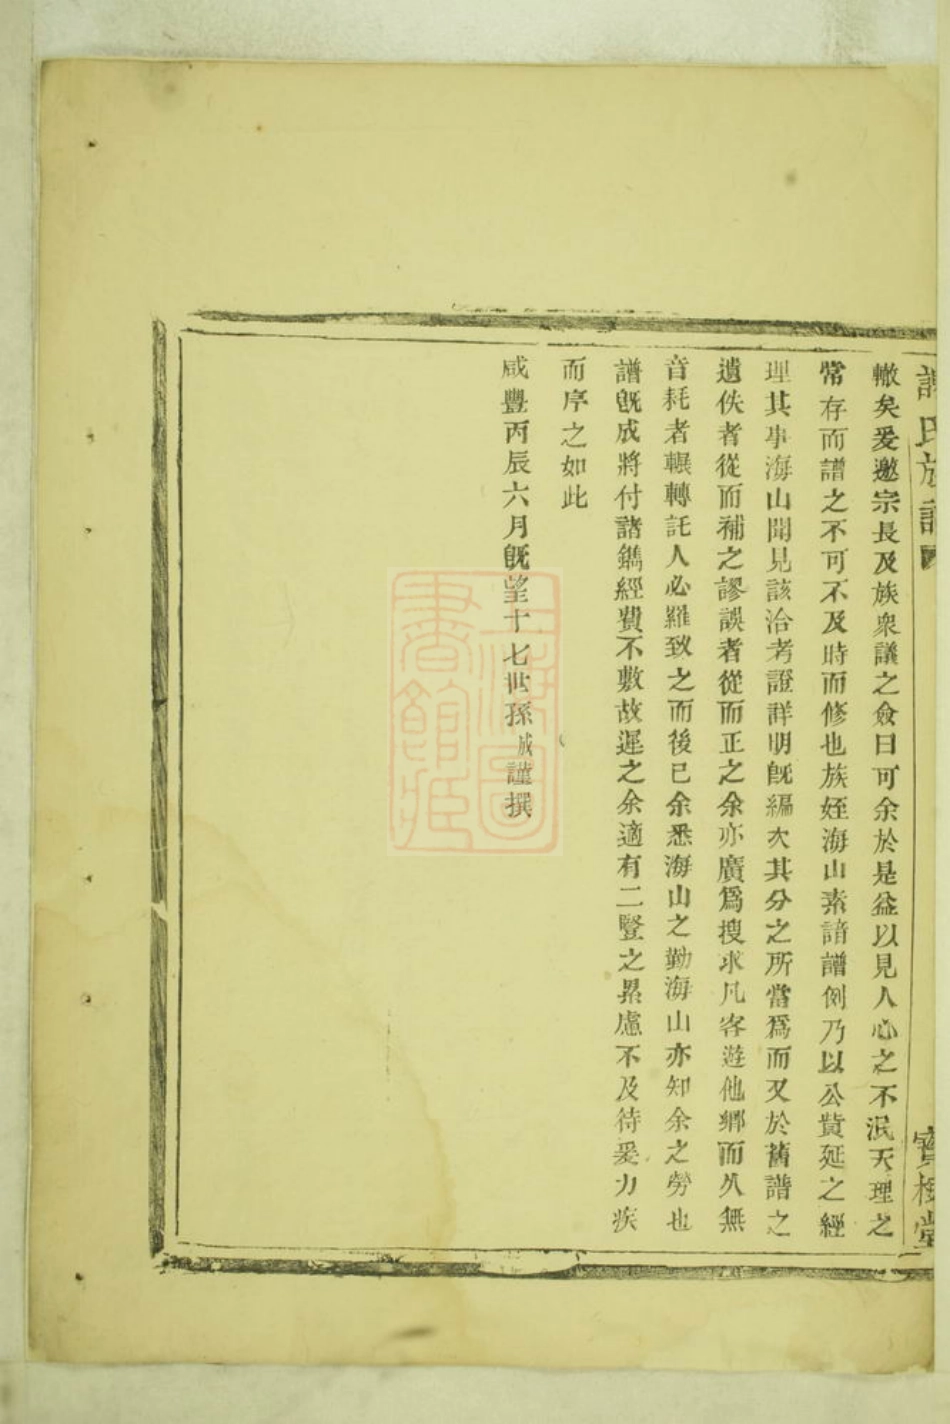 氏族譜
寶樹堂
轍矣爰邀宗長及族衆議之僉曰可余於是益以見人心之不泯天理之
常存而譜之不可不及時而修也族姪海山素諳譜例乃以公貲延之經
理其事海山聞見該洽考證詳明旣編次其分之所當爲而又於舊譜之
遺佚者從而補之謬誤者從而正之余亦廣爲搜求凡客遊他鄉而久無
音耗者輾轉託人必羅致之而後已余悉海山之勤海山亦知余之勞也
譜旣成將付諸鐫經費不敷故遲之余適有二豎之累慮不及待爰力疾
而序之如此
咸豐丙辰六月旣望十七世孫誠謹撰
上海圖書館藏